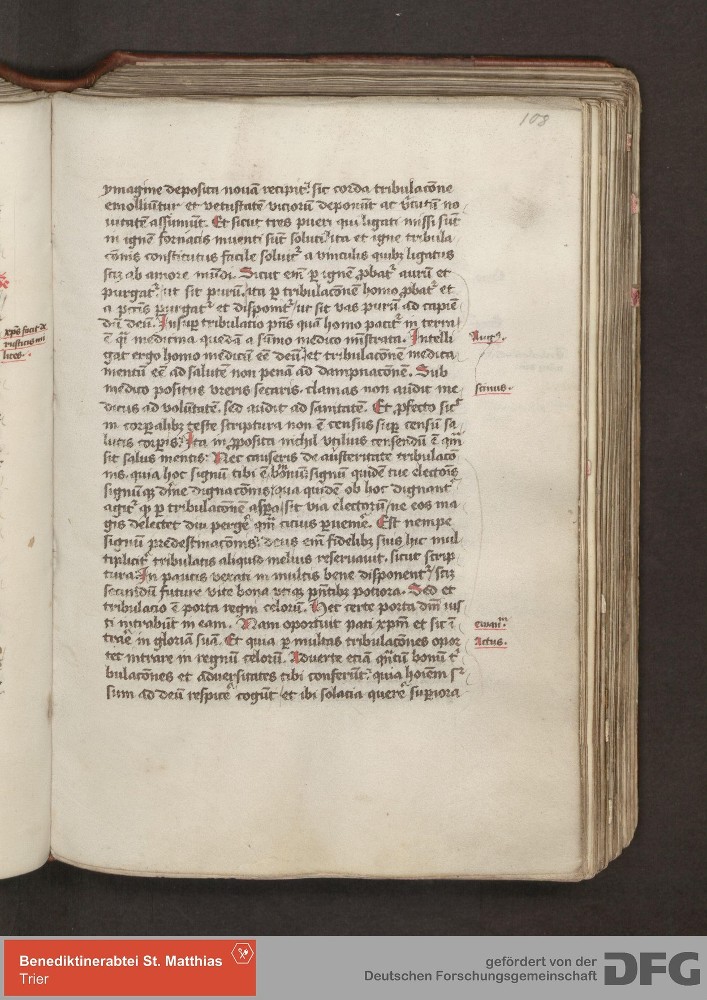 108
ymagine deposita nouā recipit᷑ sic corda tribulacōne
emolliūtur et vetustatē viciorū deponūt ac v̄tutū no
uitatē assumūt. Et sicut tres pueri qui ligati missi sūt
in ignē fornacis inuenti sūt soluti ita et igne tribula
cōnis constitutus facile soluit᷑ a vinculis quibꝫ ligatus
scꝫ ab amore mūdi. Sicut em̄ ꝑ ignē ꝓbat᷑ aurū et
purgat᷑ ut sit purū ita ꝑ tribulacōnē homo ꝓbat᷑ et
a pctīs purgat᷑ et disponit᷑ ut sit vas purū ad capiē
dū deū. Insuꝑ tribulacio pn̄s quā homo patit᷑ in terra
ē q̄ medicina quedā a sūmo medico mīstrata. Intelli
gat ergo homo medicū eē deū et tribulacōnē medica
mentū eē ad salutē non penā ad dampnacōnē. Sub
medico positus vreris secaris. clamas non audit me
dicus ad volūtatē. sed audit ad sanitatē. Et ꝓfecto sic᷑
in corꝑalibꝫ teste scriptura non ē census suꝑ censū sa
lutis corꝑis. Ita in ꝓposito nichil vtilius censendū ē qm̄
sit salus mentis. Nec causeris de austeritate tribulacō
nis. quia hoc signū tibi ē bonū signū quidē tue electōīs
signūqꝫ diīne dignacōnis qua quidē ob hoc dignant᷑
agit᷑ qꝫ ꝑ tribulacōnē asꝑa sit via electorū ne eos ma
gis delectet diu pergē qm̄ cicius ꝑuenīe. Est nempe
signū predestinacōnis deus em̄ fidelibꝫ suis hic mul
tiplicit᷑ tribulatis aliquid melius reseruauit. sicut scrip
tura. In paucis vexati in multis bene disponent᷑ scꝫ
secundū future vite bona vtiqꝫ pn̄tibꝫ potiora. Sed et
tribulacio ē porta regni celorū. Hec certe porta dn̄i ius
ti intrabūt in eam. Nam oportuit pati xpm̄ et sic ī
traē in gloriā suā. Et quia ꝑ multas tribulacōnes opor
tet intrare in regnū celorū. Aduerte etiā qn̄tū bonū t᷑
bulacōnes et aduersitates tibi conferūt quia hoīem s᷑
sum ad deū respicē cogūt et ibi solacia querē suꝑiora
Augꝰ.
stinus.
ewanm̄.
Actus.
xp̄s facit de
rusticis mi
lites.
Benediktinerabtei St. Matthias
Trier
gefördert von der
Deutschen Forschungsgemeinschaft
DFG